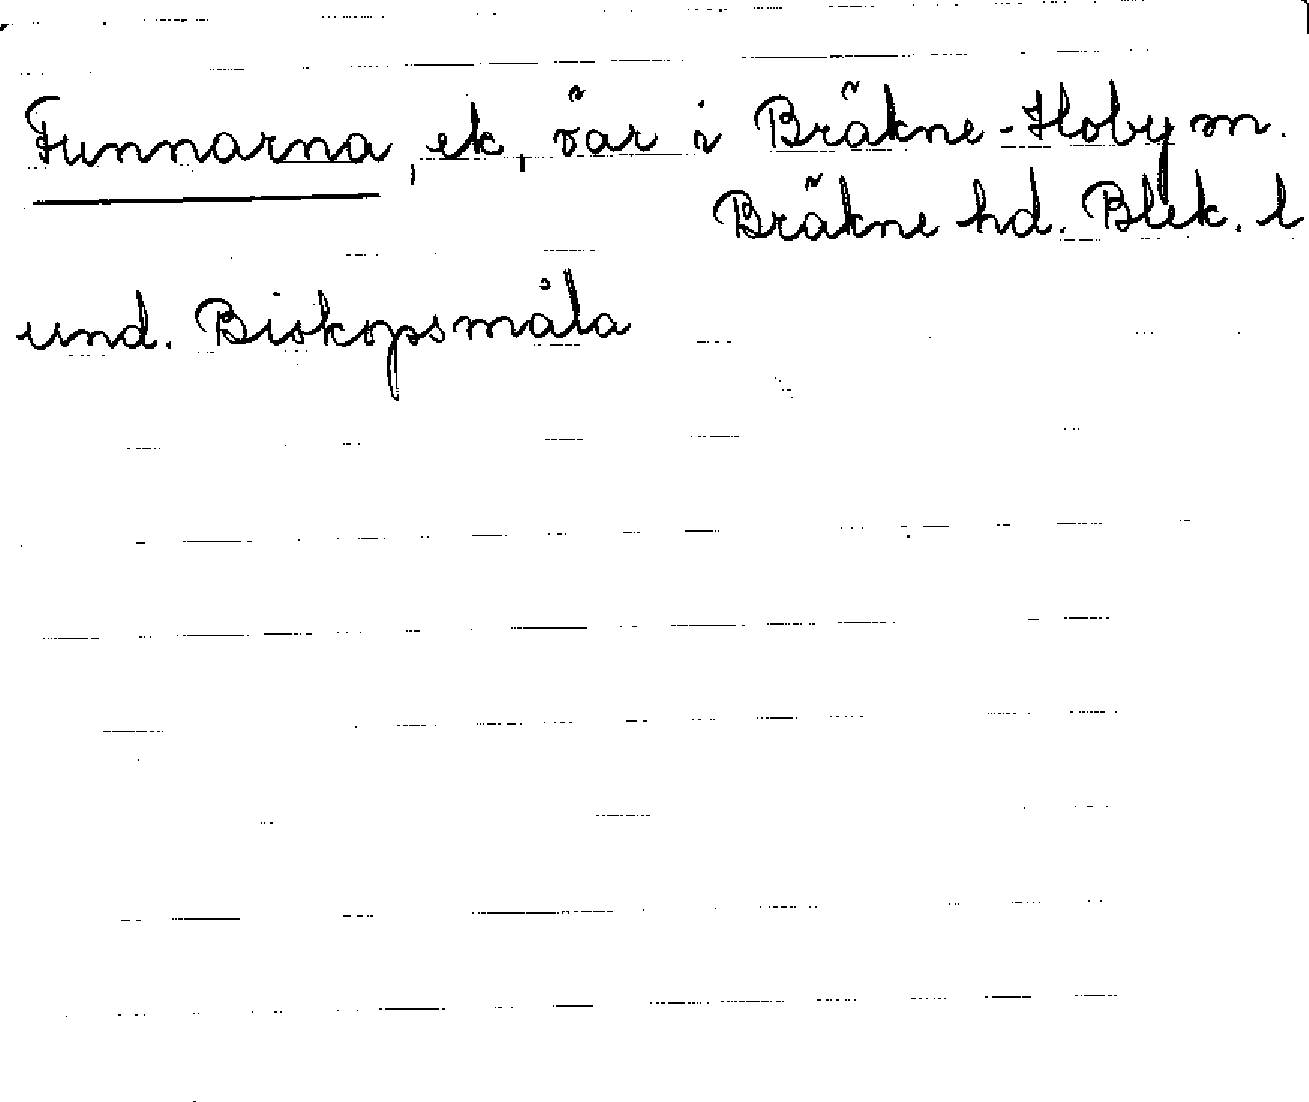 Funnarna, ek, öar i Bräkne-Hoby sn.
Bräkne hd. Blek. l
und. Biskopsmåla